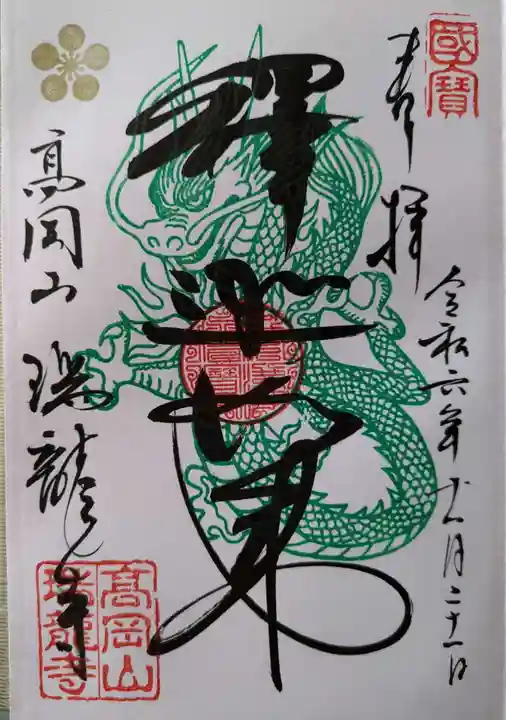 國寶
奉拝
令和六年十一月二十一日
釋迦如来
高岡山
瑞龍寺
高岡山
瑞龍寺